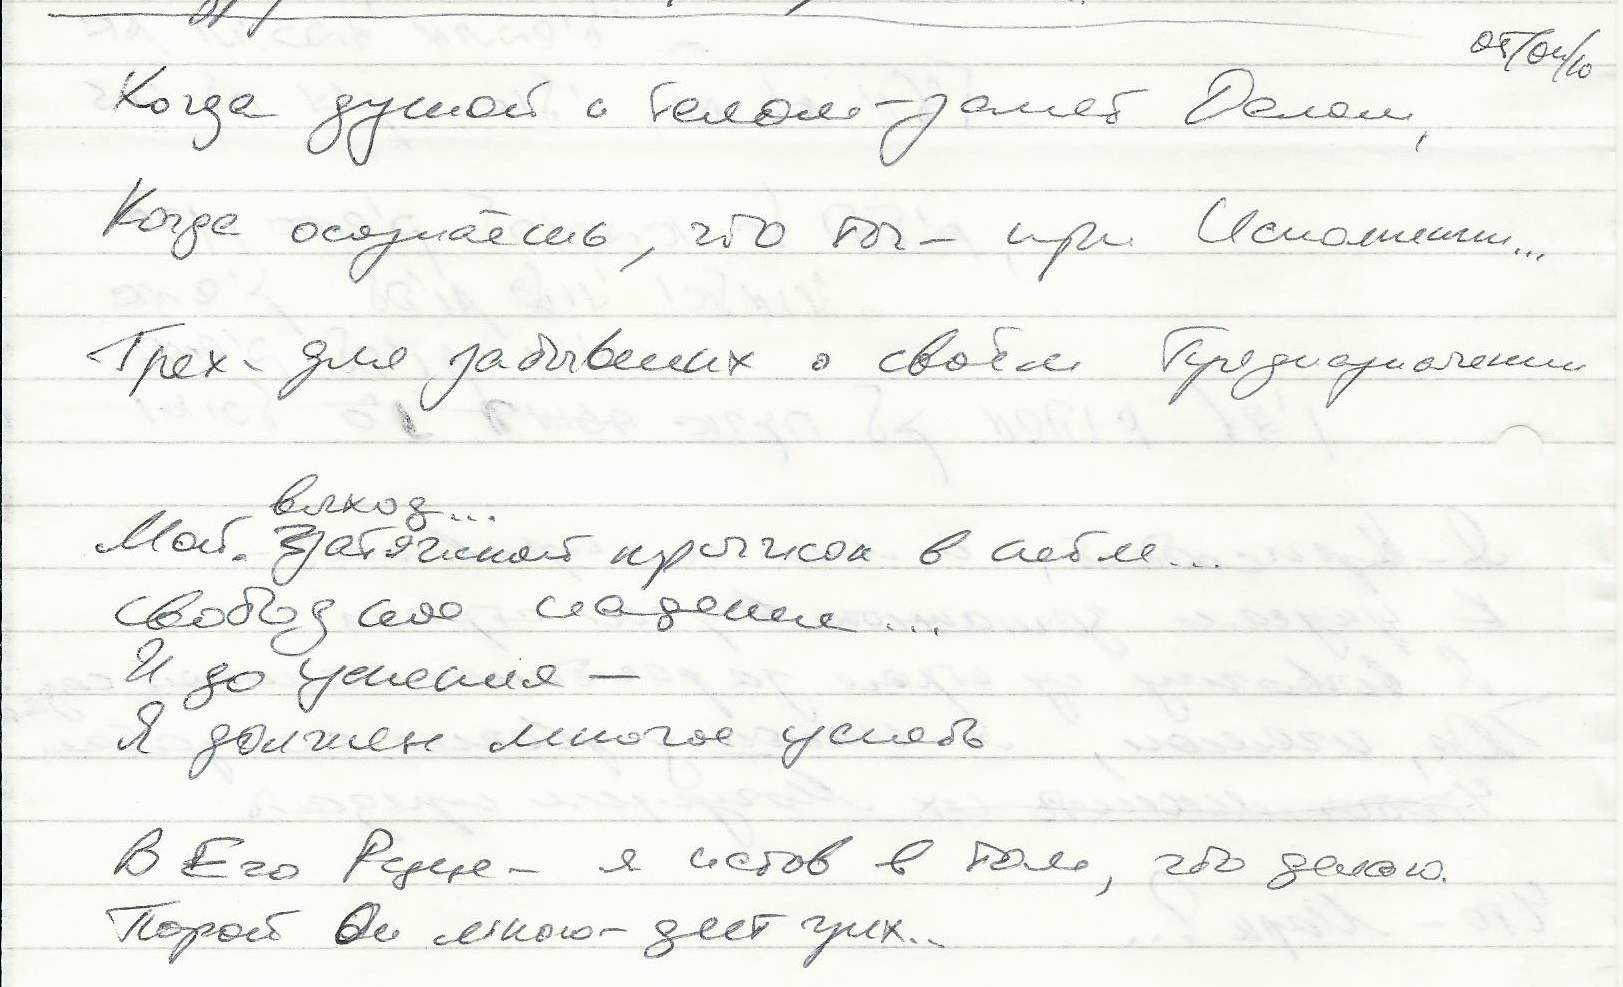 05/04/10
Когда душой и телом - занят Делом,
Когда осознаёшь, что ты - при Исполнении...
Грех - для забывших о своём Предназначении
выход...
Мой. Затяжной прыжок в небе...
свободное падение...
И до успения -
Я должен многое успеть
В Его Руце - я истов в том, что делаю.
Порой Он мною - дет